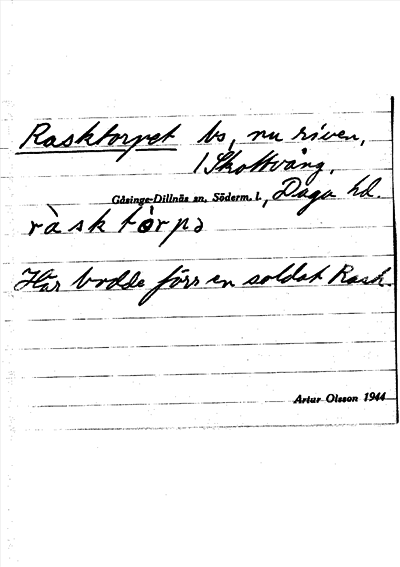 Rasktorpet bs, nu riven,
/ Skottvång,
Gåsinge-Dillnäs sn, Söderm. l., Daga hd.
ràsk tòrpə
Här bodde förr en soldat Rask.
Artur Olsson 1944